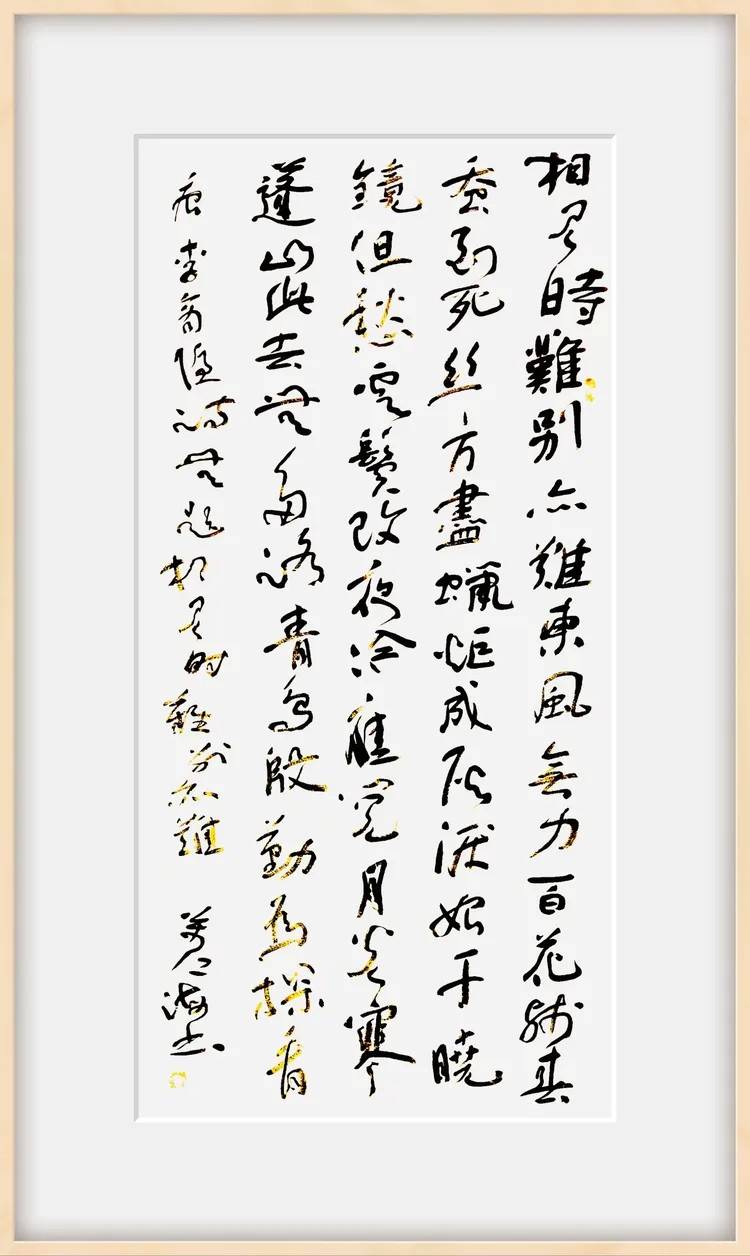 相見時難別亦難東風無力百花殘春
蚕到死丝方盡蠟炬成灰淚始干曉
鏡但愁雲鬓改夜冷應覺月光寒
蓬山此去無多路青鸟殷勤為探看
唐李商隐詩無題相見时難别亦難
海书